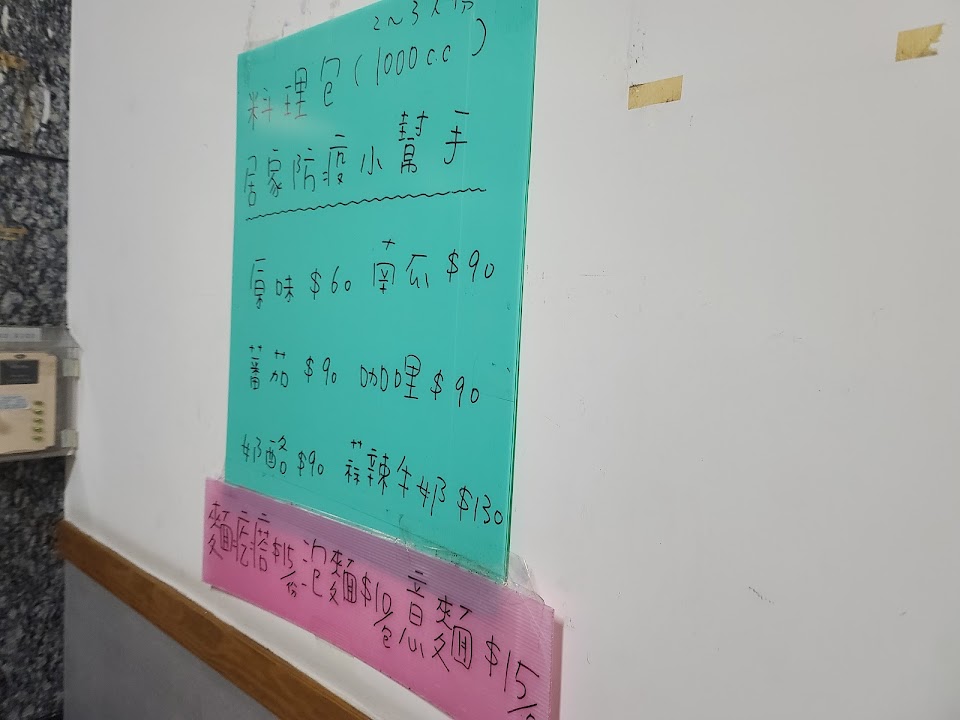 2~3人份
料理包(1000c.c)
居家防疫小幫手
原味 $60 南瓜 $90
蕃茄 $90 咖哩 $90
奶酪 $90 麻辣牛奶 $130
麵疙瘩$15/份 泡麵$10/包 意麵 $15/